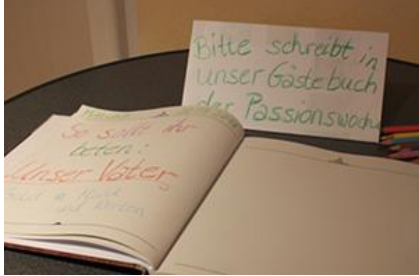 Bitte schreibt in
unser Gästebuch
der Passionswoche
So sollt ihr
beten:
Unser Vater